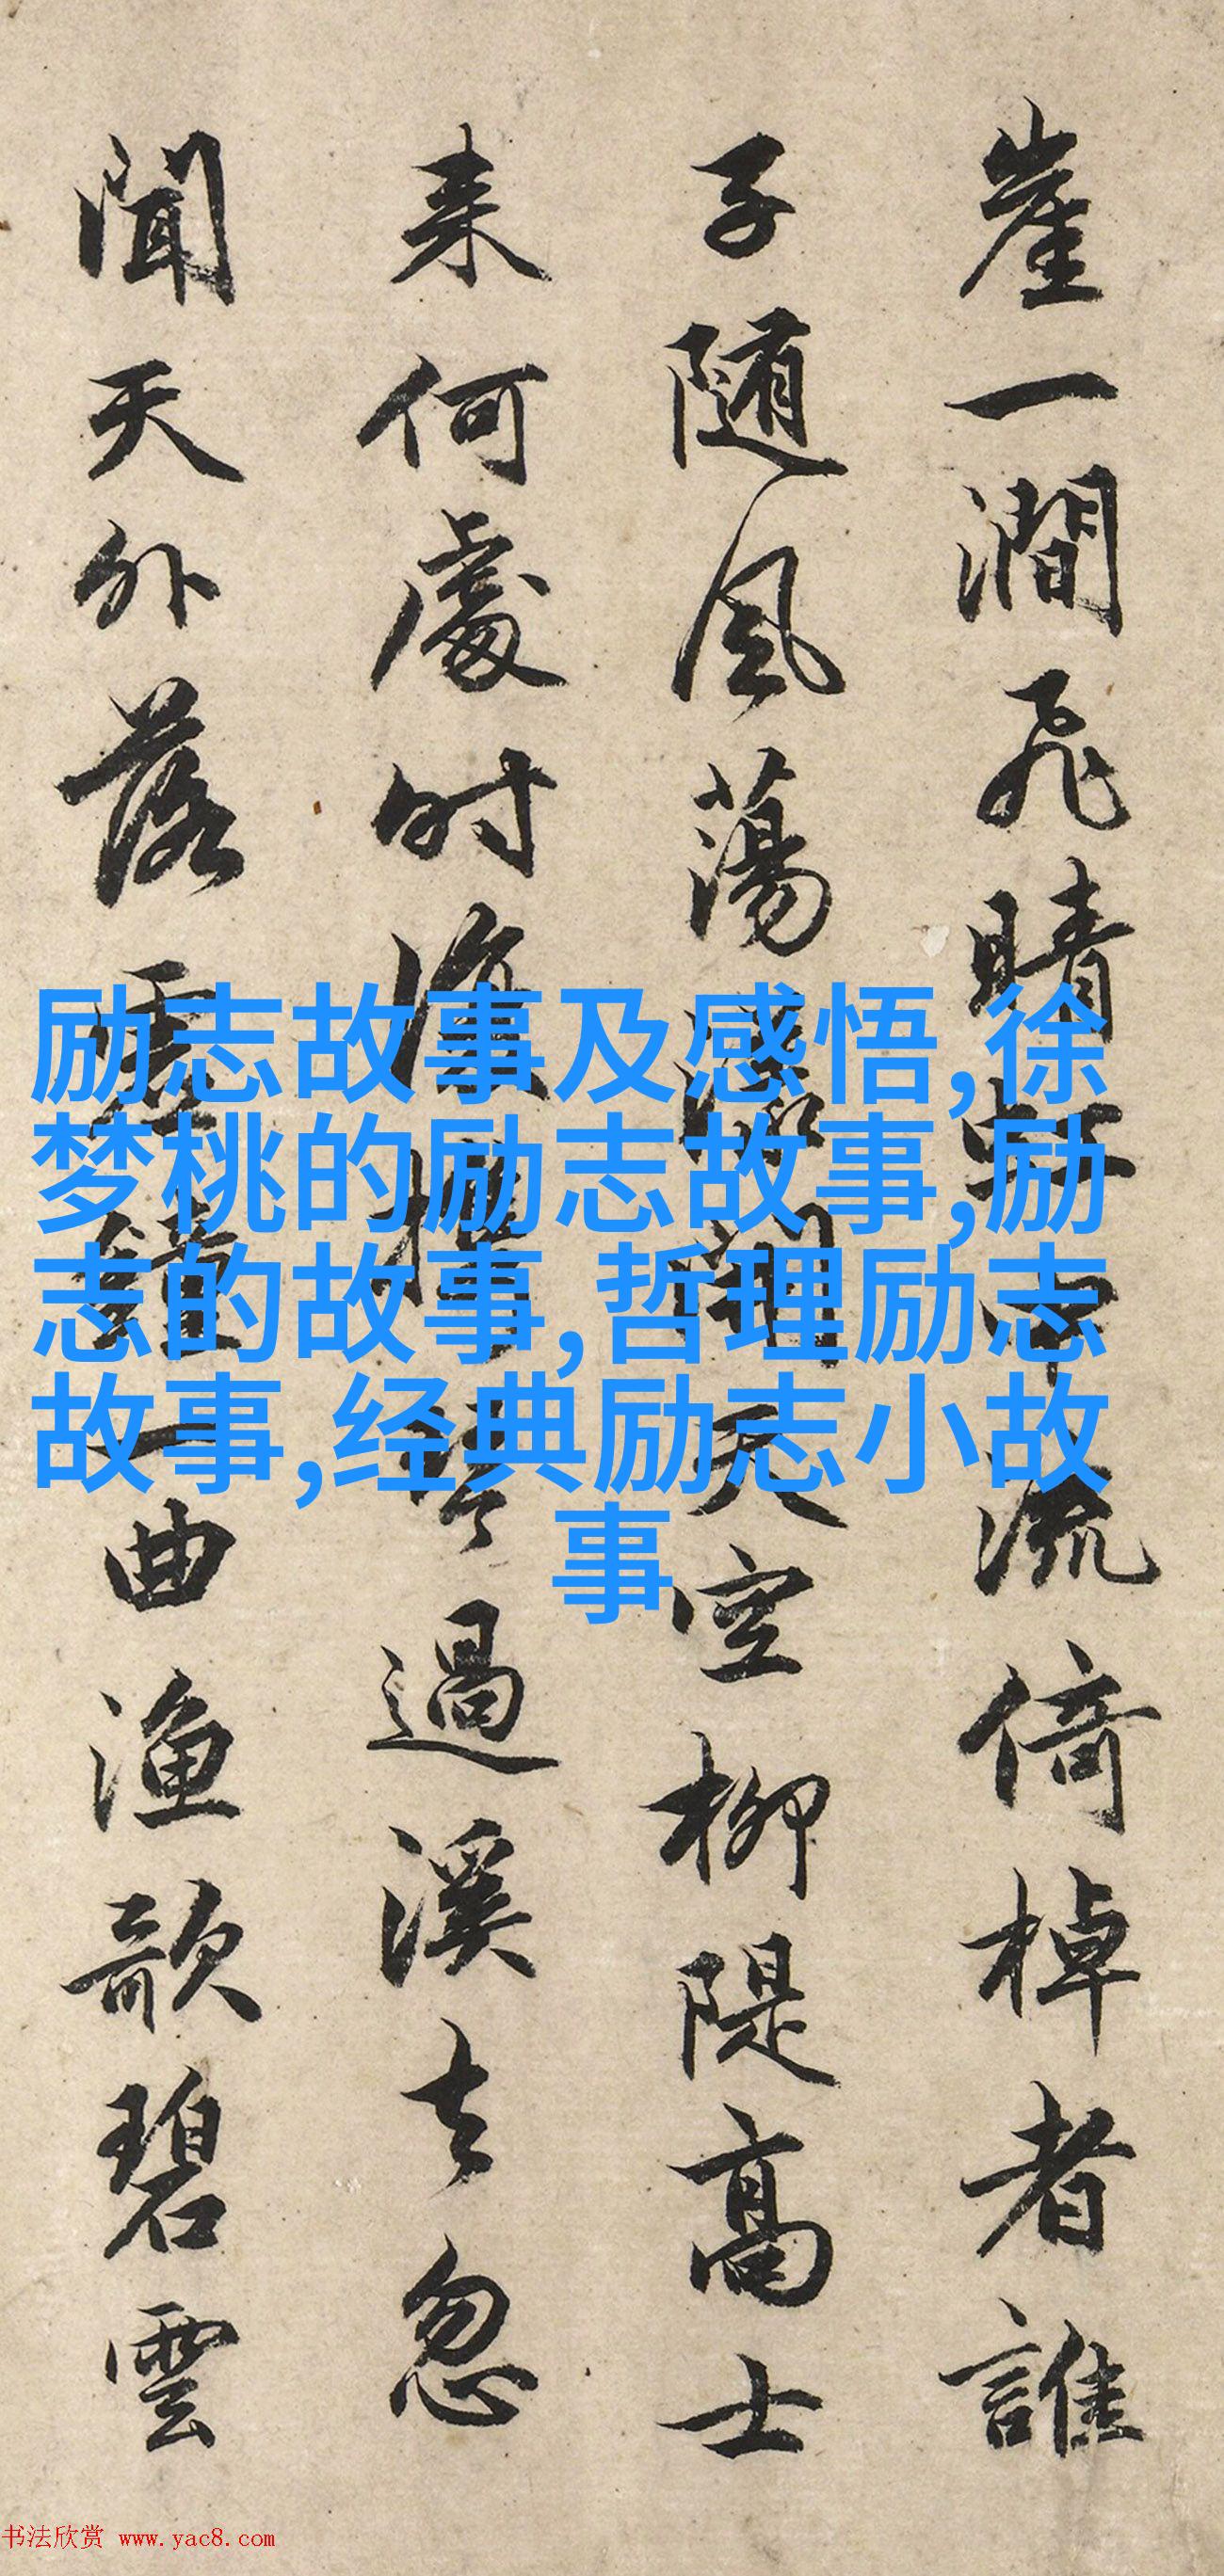 崖一澗飛晴
流倚棹者誰
子隨風蕩
天空柳隄高士
来何處时
過溪去忽
聞天外落
一曲漁歌碧雲
励志故事及感悟,徐
梦桃的励志故事,励
志的故事,哲理励志
故事,经典励志小故
事
书法欣赏 www.yac8.com